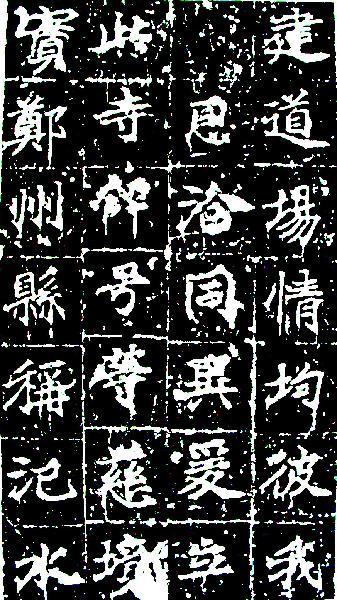 建道場情均彼我
恩洽同異爰立
此寺仰号等慈境
實鄭州縣稱汜水